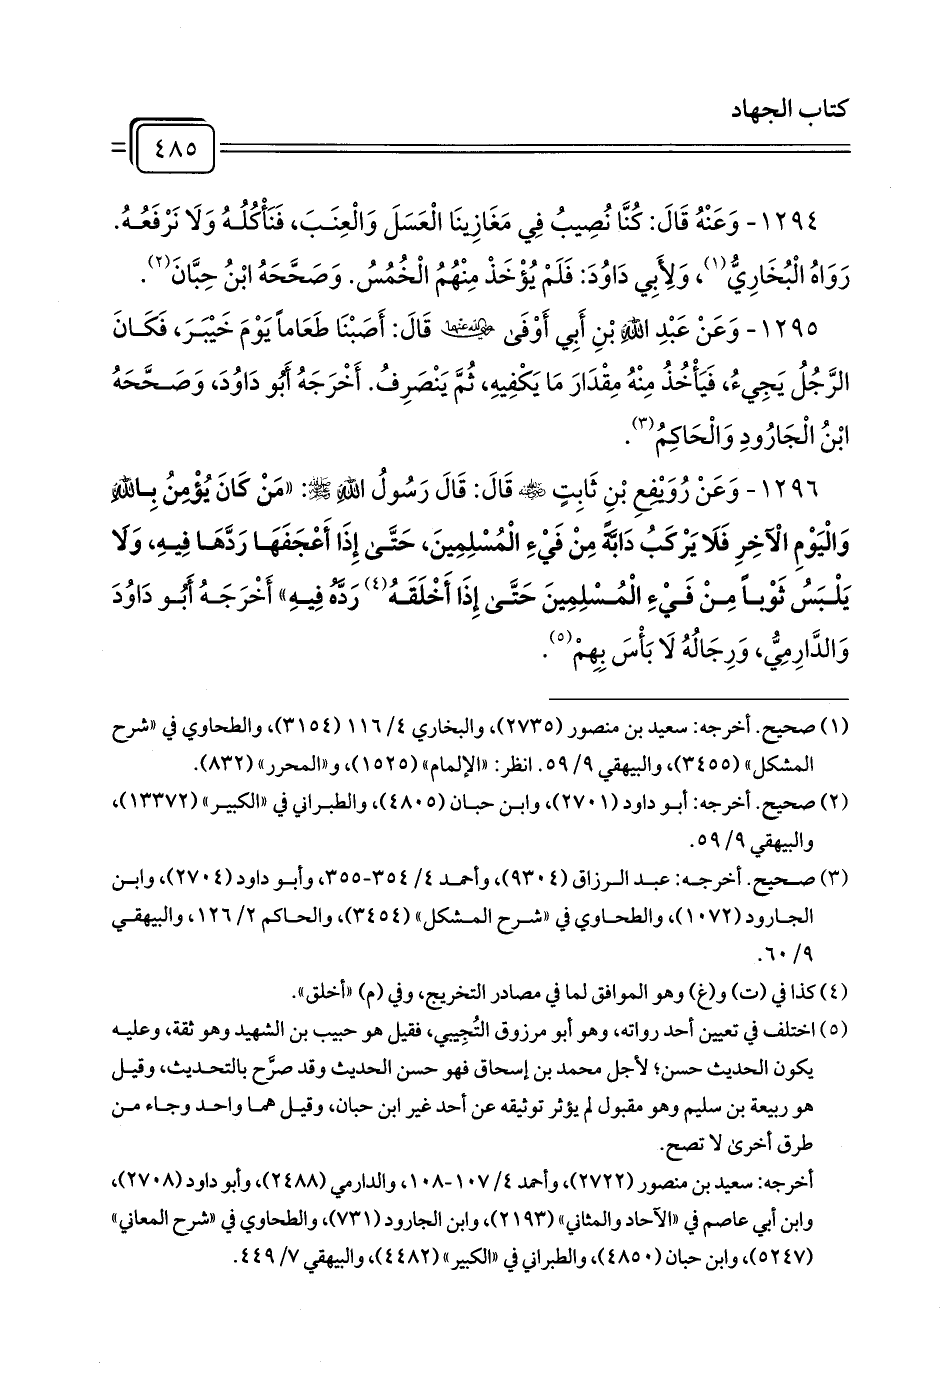 كتاب الجهاد
٤٨٥
١٢٩٤- وَعَنْهُ قَالَ: كُنَّا نُصِيبُ فِي مَغَازِينَا الْعَسَلَ وَالْعِنَبَ، فَنَأْكُلُهُ وَلَا نَرْفَعُهُ.
رَوَاهُ الْبُخَارِيُّ(١)، وَلِأَبِي دَاوُدَ: فَلَمْ يُؤْخَذْ مِنْهُمُ الْخُمُسُ. وَصَحَّحَهُ ابْنُ حِبَّانَ(٢).
١٢٩٥- وَعَنْ عَبْدِ اللهِ بْنِ أَبِي أَوْفَى رضي الله عنهما قَالَ: أَصَبْنَا طَعَاماً يَوْمَ خَيْبَرَ، فَكَانَ
الرَّجُلُ يَجِيءُ، فَيَأْخُذُ مِنْهُ مِقْدَارَ مَا يَكْفِيهِ، ثُمَّ يَنْصَرِفُ. أَخْرَجَهُ أَبُو دَاوُدَ، وَصَحَّحَهُ
ابْنُ الْجَارُودِ وَالْحَاكِمُ(٣).
١٢٩٦- وَعَنْ رُوَيْفِعِ بْنِ ثَابِتٍ رضي الله عنه قَالَ: قَالَ رَسُولُ اللهِ ﷺ: «مَنْ كَانَ يُؤْمِنُ بِاللهِ
وَالْيَوْمِ الْآخِرِ فَلَا يَرْكَبُ دَابَّةً مِنْ فَيْءِ الْمُسْلِمِينَ، حَتَّى إِذَا أَعْجَفَهَا رَدَّهَا فِيهِ، وَلَا
يَلْبَسُ ثَوْباً مِنْ فَيْءِ الْمُسْلِمِينَ حَتَّى إِذَا أَخْلَقَهُ(٤) رَدَّهُ فِيهِ» أَخْرَجَهُ أَبُو دَاوُدَ
وَالدَّارِمِيُّ، وَرِجَالُهُ لَا بَأْسَ بِهِمْ(٥).
(١) صحيح. أخرجه: سعيد بن منصور (٢٧٣٥)، والبخاري ٤/ ١١٦ (٣١٥٤)، والطحاوي في «شرح
المشكل» (٣٤٥٥)، والبيهقي ٩/ ٥٩. انظر: «الإلمام» (١٥٢٥)، و«المحرر» (٨٣٢).
(٢) صحيح. أخرجه: أبو داود (٢٧٠١)، وابن حبان (٤٨٠٥)، والطبراني في «الكبير» (١٣٣٧٢)،
والبيهقي ٩/ ٥٩.
(٣) صحيح. أخرجه: عبد الرزاق (٩٣٠٤)، وأحمد ٤/ ٣٥٤-٣٥٥، وأبو داود (٢٧٠٤)، وابن
الجارود (١٠٧٢)، والطحاوي في «شرح المشكل» (٣٤٥٤)، والحاكم ٢/ ١٢٦، والبيهقي
٩/ ٦٠.
(٤) كذا في (ت) و(غ) وهو الموافق لما في مصادر التخريج، وفي (م) «أخلق».
(٥) اختلف في تعيين أحد رواته، وهو أبو مرزوق التُّجيبي، فقيل هو حبيب بن الشهيد وهو ثقة، وعليه
يكون الحديث حسن؛ لأجل محمد بن إسحاق فهو حسن الحديث وقد صرَّح بالتحديث، وقيل
هو ربيعة بن سليم وهو مقبول لم يؤثر توثيقه عن أحد غير ابن حبان، وقيل هما واحد وجاء من
طرق أخرى لا تصح.
أخرجه: سعيد بن منصور (٢٧٢٢)، وأحمد ٤/ ١٠٧-١٠٨، والدارمي (٢٤٨٨)، وأبو داود (٢٧٠٨)،
وابن أبي عاصم في «الآحاد والمثاني» (٢١٩٣)، وابن الجارود (٧٣١)، والطحاوي في «شرح المعاني»
(٥٢٤٧)، وابن حبان (٤٨٥٠)، والطبراني في «الكبير» (٤٤٨٢)، والبيهقي ٧/ ٤٤٩.